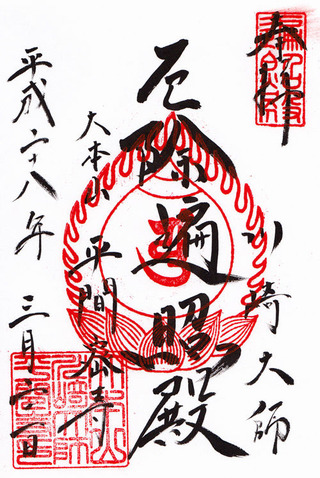 奉拝
川崎大師
厄除遍照殿
大本山
平間密寺
平成二十八年
三月吉日